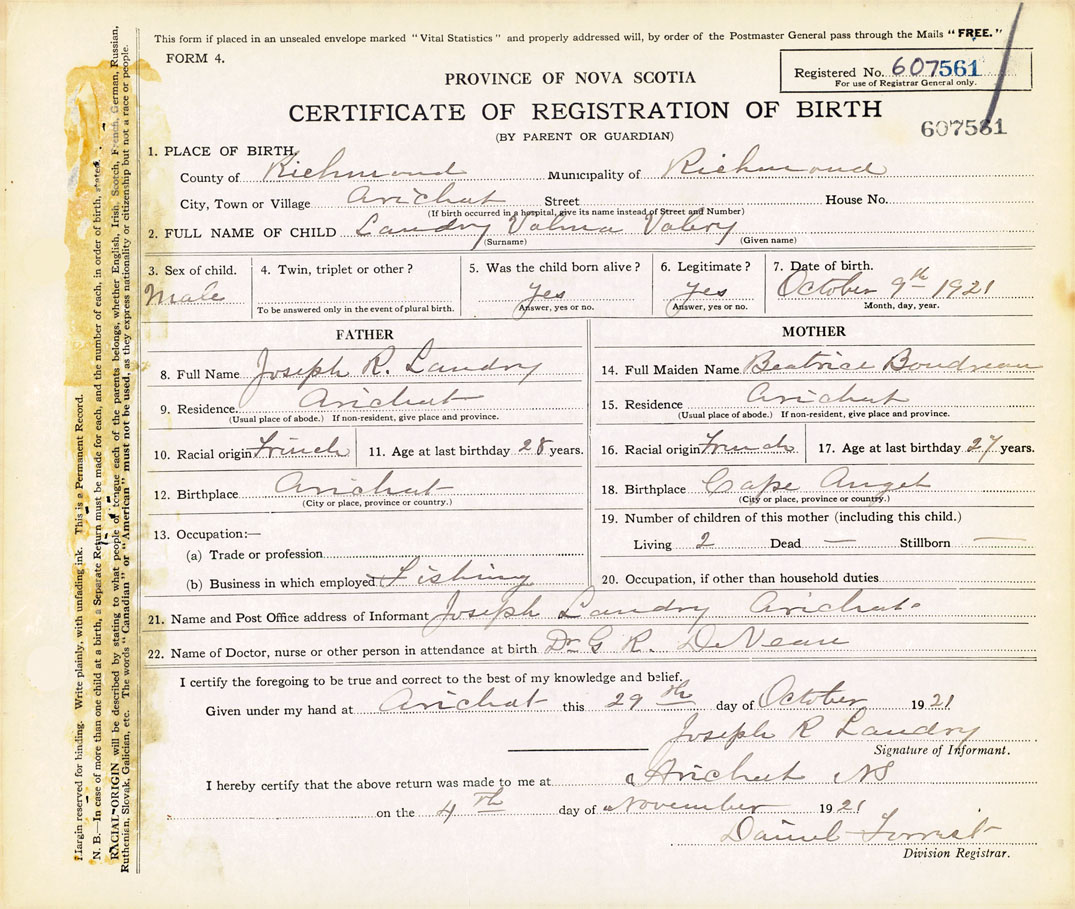 This form if placed in an unsealed envelope marked "Vital Statistics" and properly addressed will, by order of the Postmaster General pass through the Mails "FREE."
FORM 4.
Registered No. 607561
For use of Registrar General only.
PROVINCE OF NOVA SCOTIA
CERTIFICATE OF REGISTRATION OF BIRTH
607561
(BY PARENT OR GUARDIAN)
1. PLACE OF BIRTH,
County of Richmond Municipality of Richmond
City, Town or Village Arichat Street House No.
(If birth occurred in a hospital, give its name instead of Street and Number)
2. FULL NAME OF CHILD Landry Valma Valery
(Surname) (Given name)
3. Sex of child. 4. Twin, triplet or other? 5. Was the child born alive? 6. Legitimate? 7. Date of birth.
Male yes yes October 9th 1921
To be answered only in the event of plural birth. Answer, yes or no. Answer, yes or no. Month, day, year.
FATHER MOTHER
8. Full Name Joseph R. Landry 14. Full Maiden Name Beatrice Boudreau
9. Residence Arichat 15. Residence Arichat
(Usual place of abode.) If non-resident, give place and province. (Usual place of abode.) If non-resident, give place and province.
10. Racial origin French 11. Age at last birthday 28 years. 16. Racial origin French 17. Age at last birthday 27 years.
12. Birthplace Arichat 18. Birthplace Cape Auget
(City or place, province or country.) (City or place, province or country.)
13. Occupation:— 19. Number of children of this mother (including this child.)
(a) Trade or profession Living 2 Dead — Stillborn —
(b) Business in which employed Fishing 20. Occupation, if other than household duties
21. Name and Post Office address of Informant Joseph Landry Arichat
22. Name of Doctor, nurse or other person in attendance at birth Dr G R. DeVeau
I certify the foregoing to be true and correct to the best of my knowledge and belief.
Given under my hand at Arichat this 29th day of October 1921
Joseph R Landry
Signature of Informant.
I hereby certify that the above return was made to me at Arichat NS
on the 4th day of November 1921
Daniel Forrest
Division Registrar.
Margin reserved for binding. Write plainly, with unfading ink. This is a Permanent Record.
N. B.—In case of more than one child at a birth, a Separate Return must be made for each, and the number of each, in order of birth, stated.
RACIAL ORIGIN will be described by stating to what people or tongue each of the parents belongs, whether English, Irish, Scotch, French, German, Russian,
Ruthenian, Slovak, Galician, etc. The words "Canadian" or "American" must not be used, as they express nationality or citizenship but not a race or people.